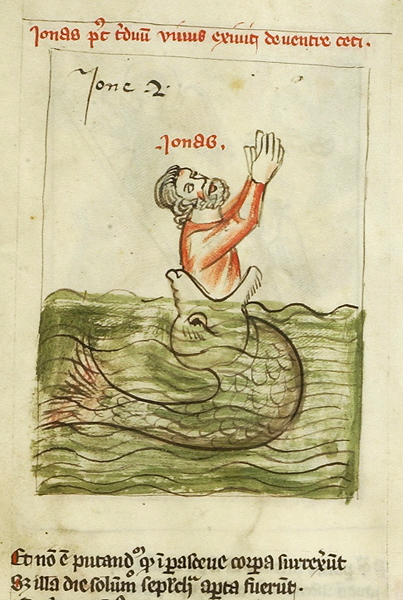 Jonas pt t'duū vivus exiuit de uentre ceti.
Jone 2.
Jonas.
Et nō ē putand⁹ qͥ i pasceue corpa surrexͬūt
Sꝫ illa die solūm sepl'chͣ apta fuerūt.